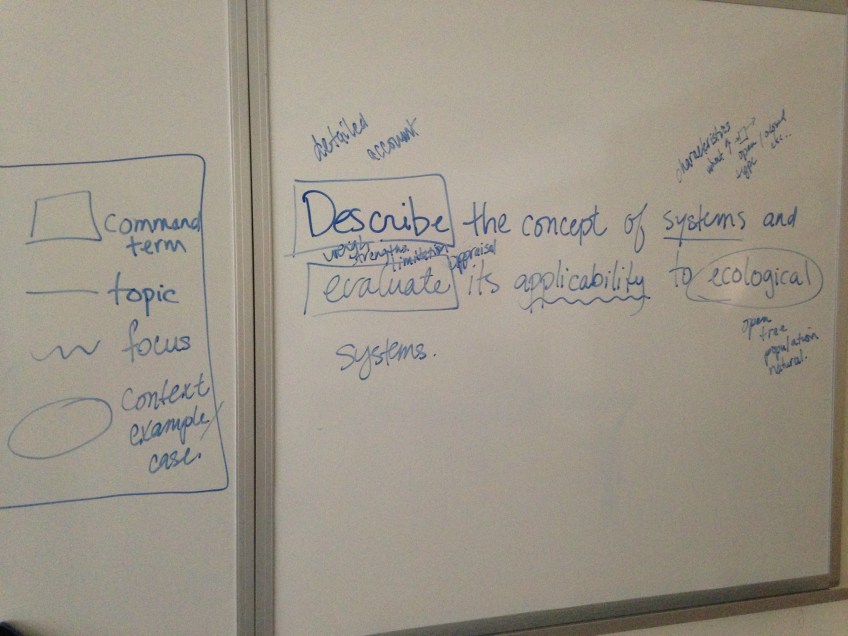 command
term
topic
focus
context
example/
case.
detailed
account
characteristics
what
open / closed
type etc...
Describe the concept of systems and
weigh strengths limitation appraisal
evaluate its applicability to ecological
systems.
open
tree
population
natural.